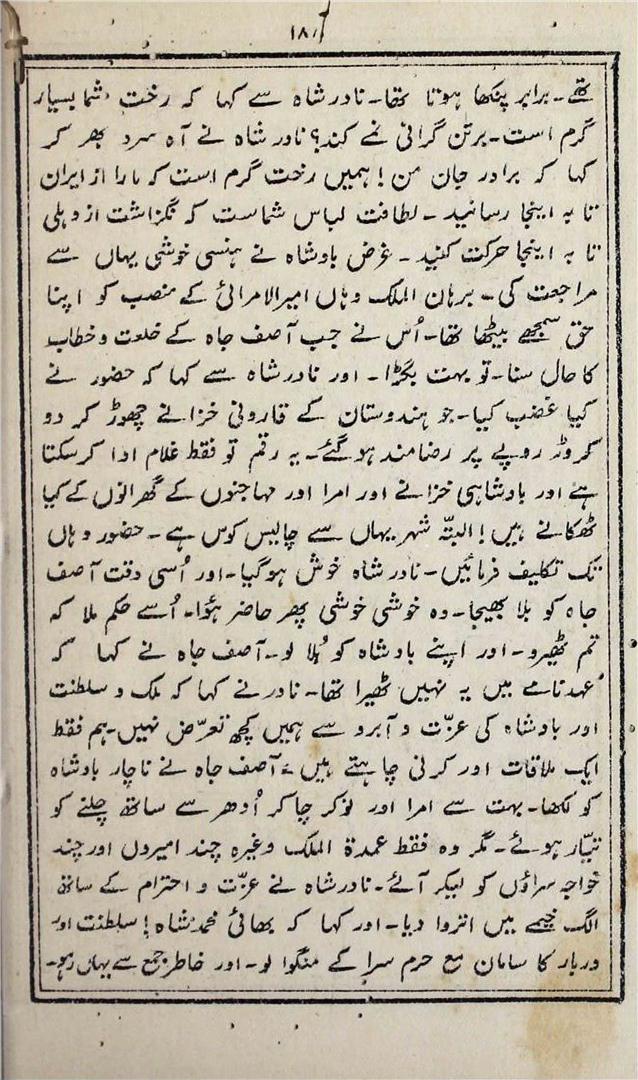 ۱۸۰
تھے۔ برابر پنکھا ہوتا تھا۔ نادر شاہ سے کہا کہ رخت شما بسیار
گرم است۔ برتن گرانی نمے کند؟ نادر شاہ نے آہ سرد بھر کر
کہا کہ برادر جان من! ہمیں رخت گرم است کہ مارا از ایران
تا بہ اینجا رسانید۔ لطافت لباس شماست کہ نگزاشت از دہلی
تا بہ اینجا حرکت کنید۔ غرض بادشاہ نے ہنسی خوشی یہاں سے
مراجعت کی۔ برہان الملک وہاں امیرالامرائی کے منصب کو اپنا
حق سمجھے بیٹھا تھا۔ اُس نے جب آصف جاہ کے خلعت و خطاب
کا حال سنا۔ تو بہت بگڑا۔ اور نادر شاہ سے کہا کہ حضور نے
کیا غضب کیا۔ جو ہندوستان کے قارونی خزانے چھوڑ کر دو
کروڑ روپے پر رضامند ہوگئے۔ یہ رقم تو فقط غلام ادا کرسکتا
ہے اور بادشاہی خزانے اور امرا اور مہاجنوں کے گھرانوں کے کیا
ٹھکانے ہیں! البتّہ شہر یہاں سے چالیس کوس ہے۔ حضور وہاں
تک تکلیف فرمائیں۔ نادر شاہ خوش ہوگیا۔ اور اُسی وقت آصف
جاہ کو بلا بھیجا۔ وہ خوشی خوشی پھر حاضر ہؤا۔ اُسے حکم ملا کہ
تم ٹھیرو۔ اور اپنے بادشاہ کو بُلا لو۔ آصف جاہ نے کہا کہ
عہدنامے میں یہ نہیں ٹھیرا تھا۔ نادر نے کہا کہ ملک و سلطنت
اور بادشاہ کی عزّت و آبرو سے ہمیں کچھ تعرّض نہیں۔ ہم فقط
ایک ملاقات اور کرنی چاہتے ہیں۔ آصف جاہ نے ناچار بادشاہ
کو لکھا۔ بہت سے امرا اور نوکر چاکر اُدھر سے ساتھ چلنے کو
تیّار ہوئے۔ مگر وہ فقط عمدۃ الملک وغیرہ چند امیروں اور چند
خواجہ سراؤں کو لیکر آئے۔ نادر شاہ نے عزّت و احترام کے ساتھ
الگ خیمے میں اتروا دیا۔ اور کہا کہ بھائی محمد شاہ! سلطنت اور
دربار کا سامان مع حرم سرا کے منگوا لو۔ اور خاطر جمع سے یہاں رہو۔